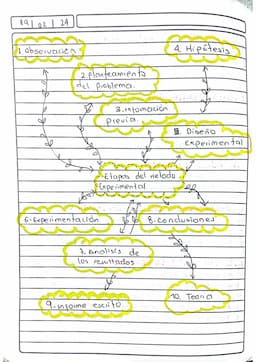 19 / 02 / 24
1. Observación
4. Hipótesis
2. planteamiento
del problema.
3. información
previa.
5. Diseño
experimental
Etapas del metodo
Experimental
6. Experimentación
8. conclusiones
7. analisis de
los resultados
9. informe escrito
10. Teoria